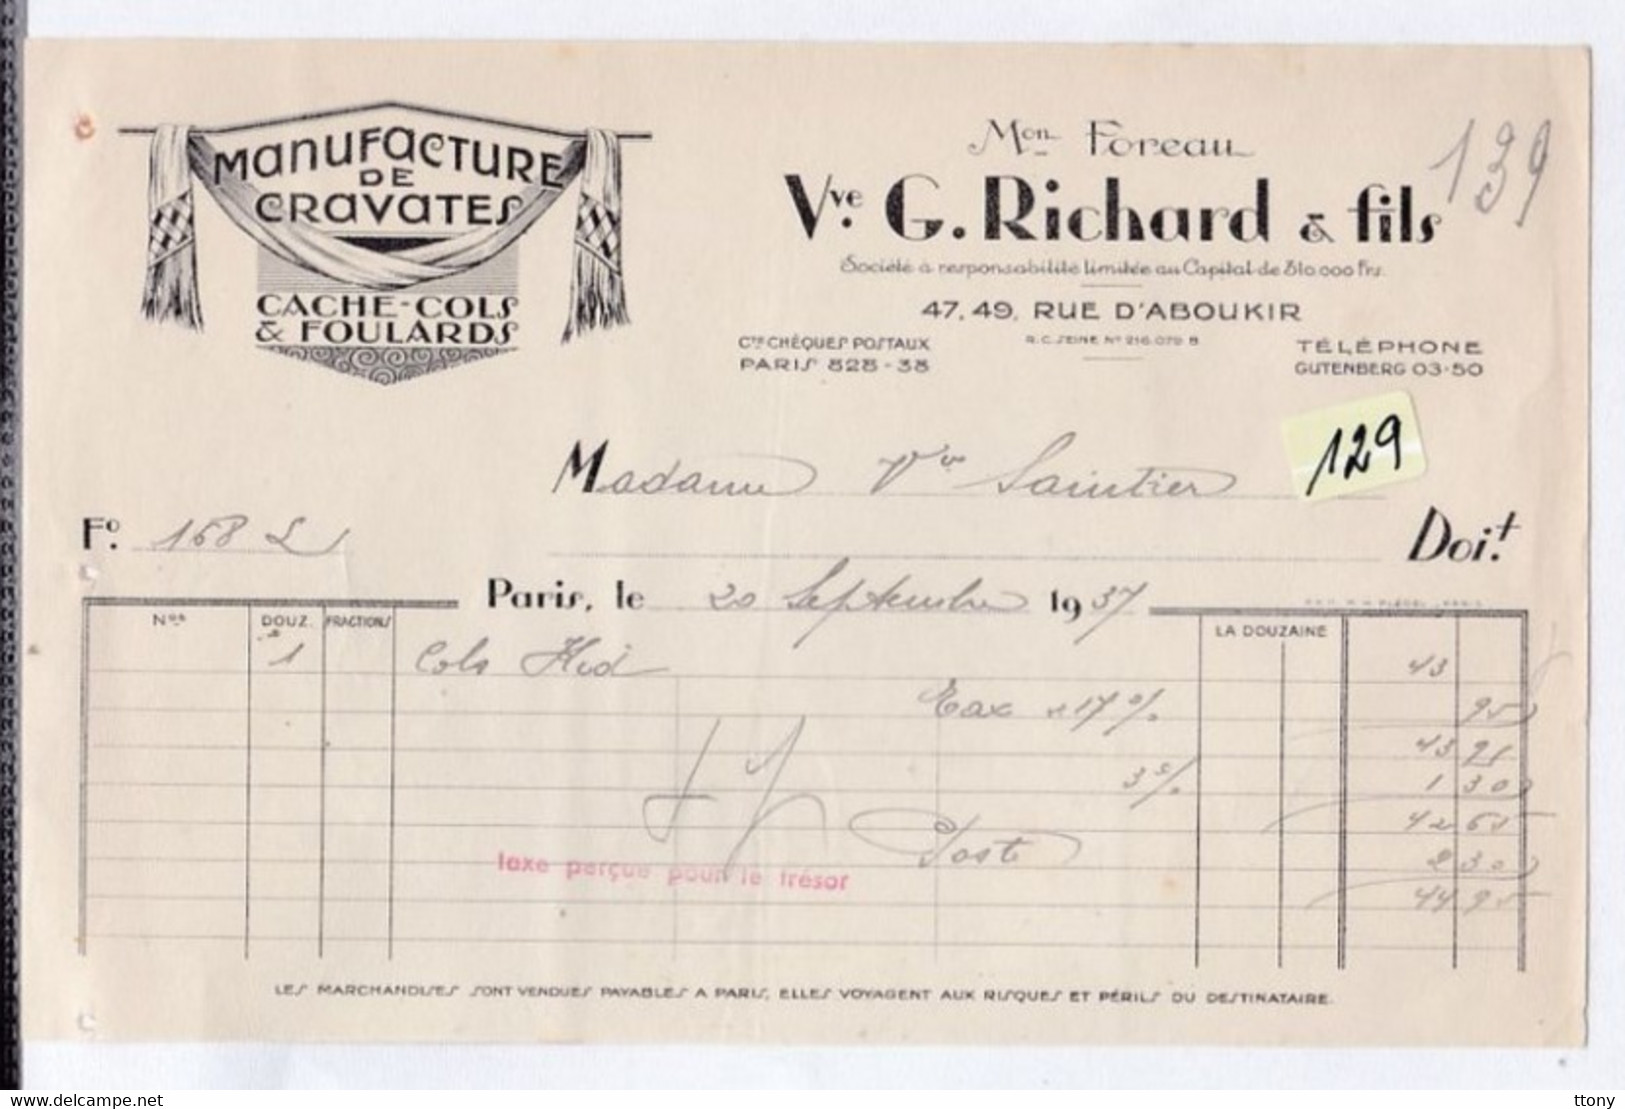 MANUFACTURE
DE
CRAVATES
CACHE-COLS
& FOULARDS
Mon Foreau
Vve. G. Richard & fils
139
Société à responsabilité limitée au Capital de 310.000 Frs.
47, 49, RUE D'ABOUKIR
Cte CHÈQUES POSTAUX
PARIS 828-38
R.C. SEINE No 216.079 B
TÉLÉPHONE
GUTENBERG 03-50
129
Madame Vve Saintier
Fo. 168 L
Doi.t
Paris, le 20 Septembre 1937
Nos DOUZ. FRACTIONS LA DOUZAINE
1 Cols 43
Tax 95
43 95
3 % 1 30
42 65
Poste 2 30
44 95
taxe perçue pour le trésor
LES MARCHANDISES SONT VENDUES PAYABLES A PARIS, ELLES VOYAGENT AUX RISQUES ET PÉRILS DU DESTINATAIRE.
ttony